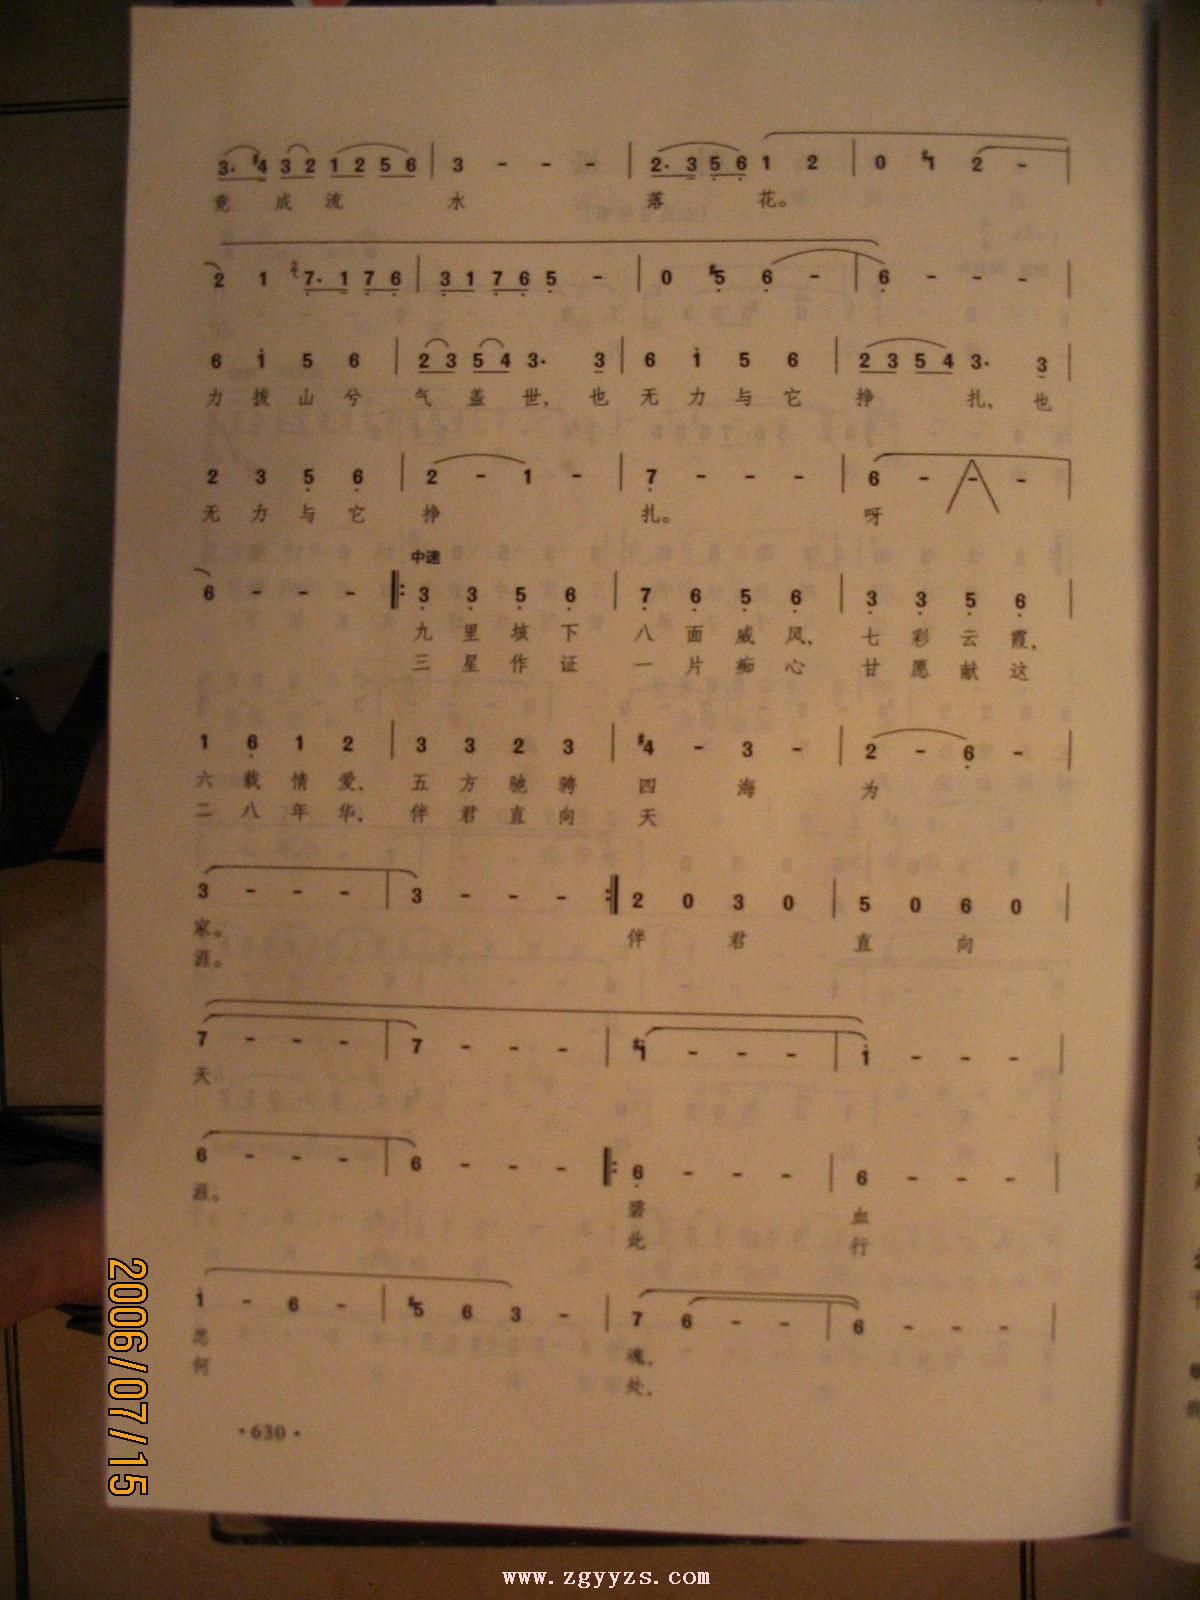 3. #4 3 2 1 2 5 6 | 3 - - - | 2. 3 5 6 1 2 | 0 #1 2 - |
竟 成 流 水 落 花。
2 1 7. 1 7 6 | 3 1 7 6 5 - | 0 #5 6 - | 6 - - - |
6 i 5 6 | 2 3 5 4 3. 3 | 6 i 5 6 | 2 3 5 4 3. 3 |
力 拨 山 兮 气 盖 世, 也 无 力 与 它 挣 扎, 也
2 3 5 6 | 2 - 1 - | 7 - - - | 6 - - - |
无 力 与 它 挣 扎。 呀
中速
6 - - - ‖: 3 3 5 6 | 7 6 5 6 | 3 3 5 6 |
九 里 垓 下 八 面 威 风, 七 彩 云 霞,
三 星 作 证 一 片 痴 心 甘 愿 献 这
1 6 1 2 | 3 3 2 3 | #4 - 3 - | 2 - 6 - |
六 载 情 爱, 五 方 驰 骋 四 海 为
二 八 年 华, 伴 君 直 向 天
3 - - - | 3 - - - :‖ 2 0 3 0 | 5 0 6 0 |
家。 伴 君 直 向
涯。
7 - - - | 7 - - - | #i - - - | i - - - |
天
6 - - - | 6 - - - ‖: 6 - - - | 6 - - - |
涯。 碧 血
此 行
i - 6 - | #5 6 3 - | 7 6 - - | 6 - - - |
忠 魂,
何 处,
·630·
2006/07/15
www.zgyyzs.com